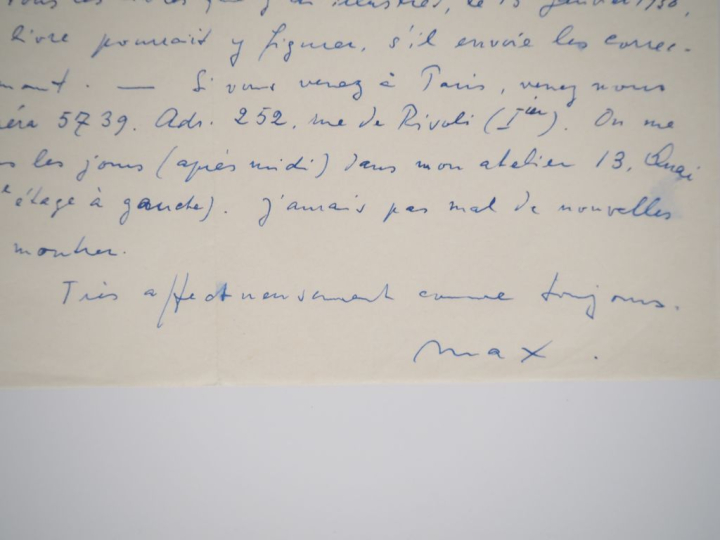 tous les livres que j'ai illustrés, le 15 janvier 1950,
livre pourrait y figurer, s'il envoie les correc-
mant. — Si vous venez à Paris, venez nous
éra 5739. Adr. 252, rue de Rivoli (Iier). On me
s les jours (après midi) dans mon atelier 13, Quai
e étage à gauche). J'aurais pas mal de nouvelles
montrer.
Très affectueusement comme toujours.
Max.